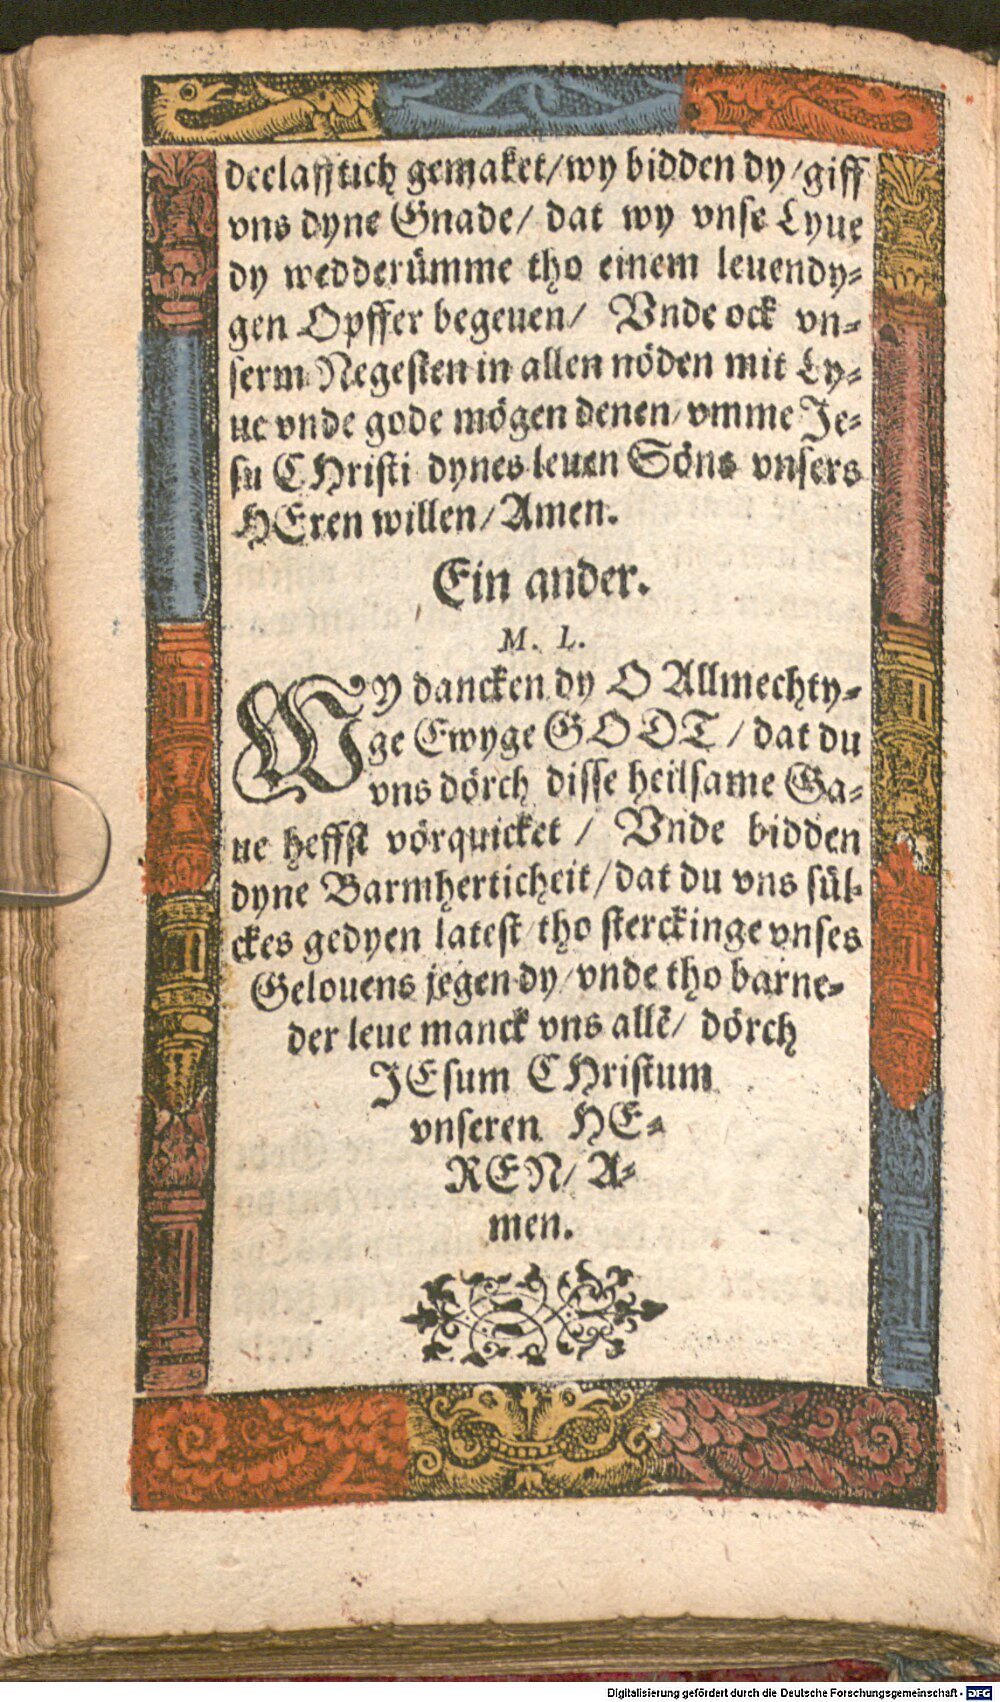 deelafftich gemaket/ wy bidden dy/ giff
vns dyne Gnade/ dat wy vnse Lyue
dy wedderümme tho einem leuendy-
gen Opffer begeuen/ Vnde ock vn-
serm Negesten in allen nöden mit Ly-
ue vnde gode mögen denen/ vmme Je-
su CHristi dynes leuen Söns vnsers
HEren willen/ Amen.
Ein ander.
M. L.
WY dancken dy O Allmechty-
ge Ewyge GODT/ dat du
vns dörch disse heilsame Ga-
ue heffst vörquicket/ Vnde bidden
dyne Barmherticheit/ dat du vns sül-
ckes gedyen latest/ tho sterckinge vnses
Gelouens jegen dy/ vnde tho barne-
der leue manck vns allē/ dörch
JEsum CHristum
vnseren HE-
REN/ A-
men.
Digitalisierung gefördert durch die Deutsche Forschungsgemeinschaft - DFG